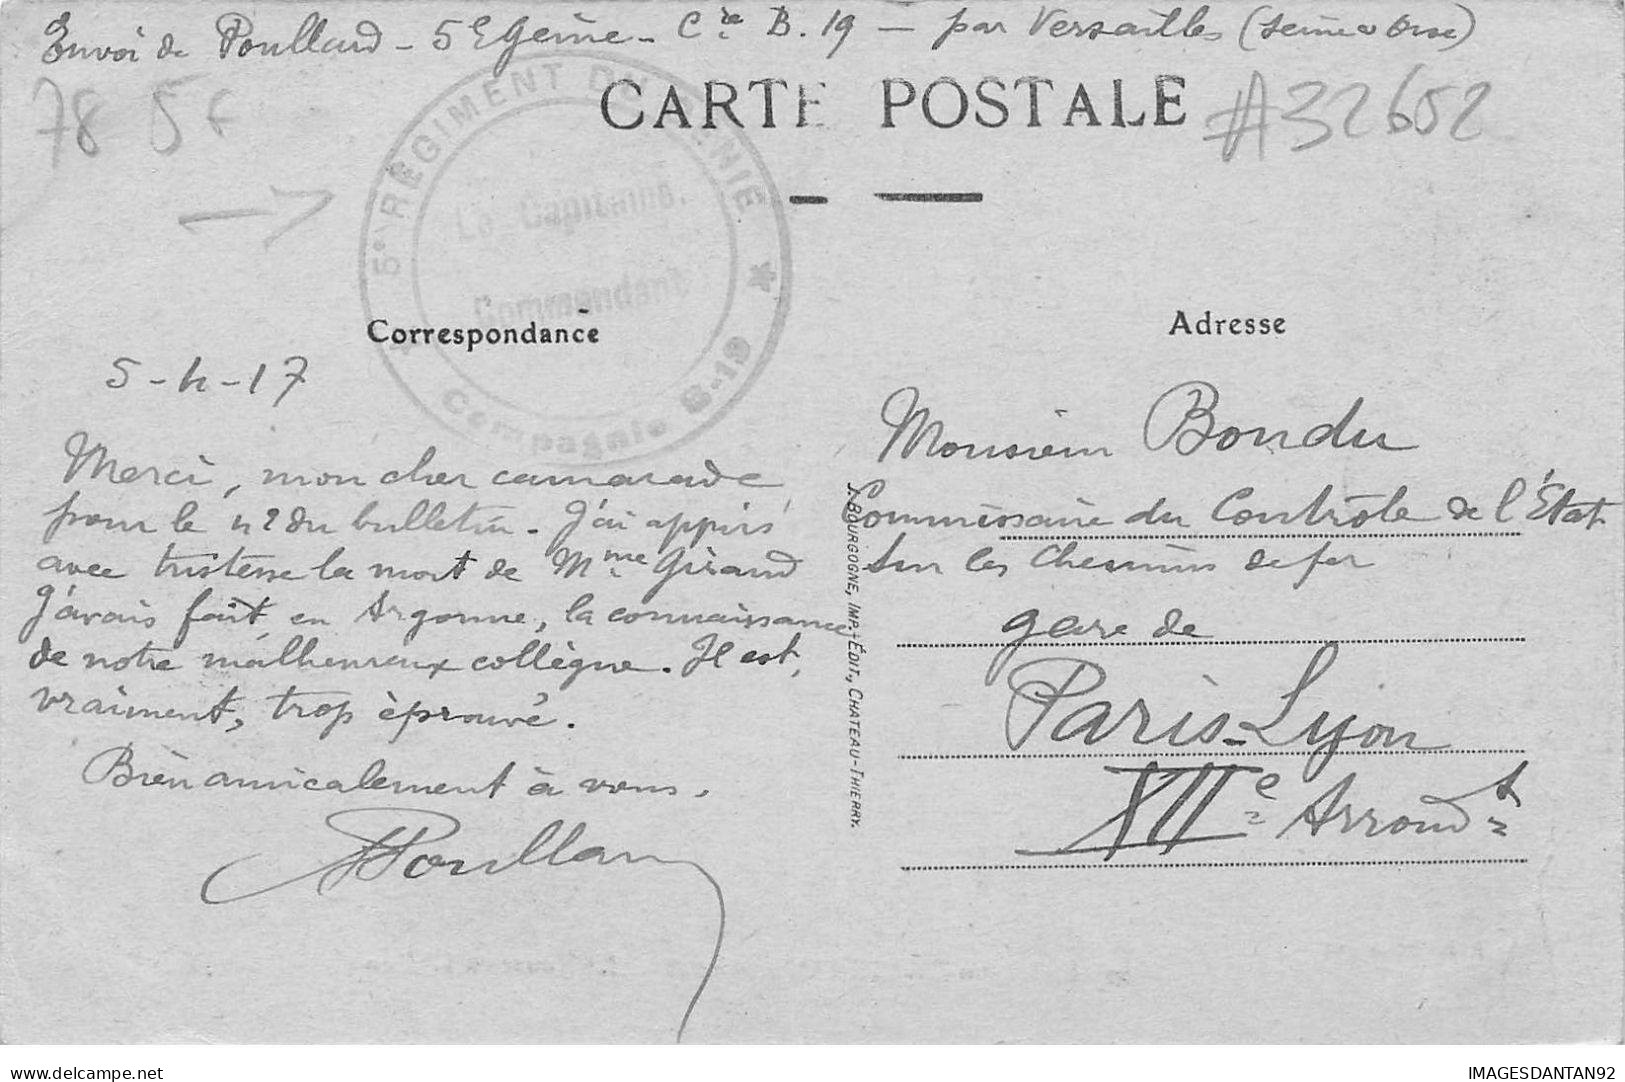 Envoi de Poullard - 5e Génie - Cie B. 19 - par Versailles (Seine et Oise)
78 5F
CARTE POSTALE
#32652
5e RÉGIMENT DU GÉNIE
Le Capitaine
Commandant
Compagnie B-19
Correspondance
5-4-17
Merci, mon cher camarade
pour le n° du bulletin. J'ai appris
avec tristesse la mort de Mme Girand
J'avais fait, en Argonne, la connaissance
de notre malheureux collègue. Il est,
vraiment, trop éprouvé.
Bien amicalement à vous.
Poullard
J. BOURGOGNE, IMP.-ÉDIT., CHATEAU-THIERRY.
Adresse
Monsieur Bondu
Commissaire du Contrôle de l'État
sur les Chemins de fer
gare de
Paris-Lyon
XIIe Arrondt
IMAGESDANTAN92
delcampe.net